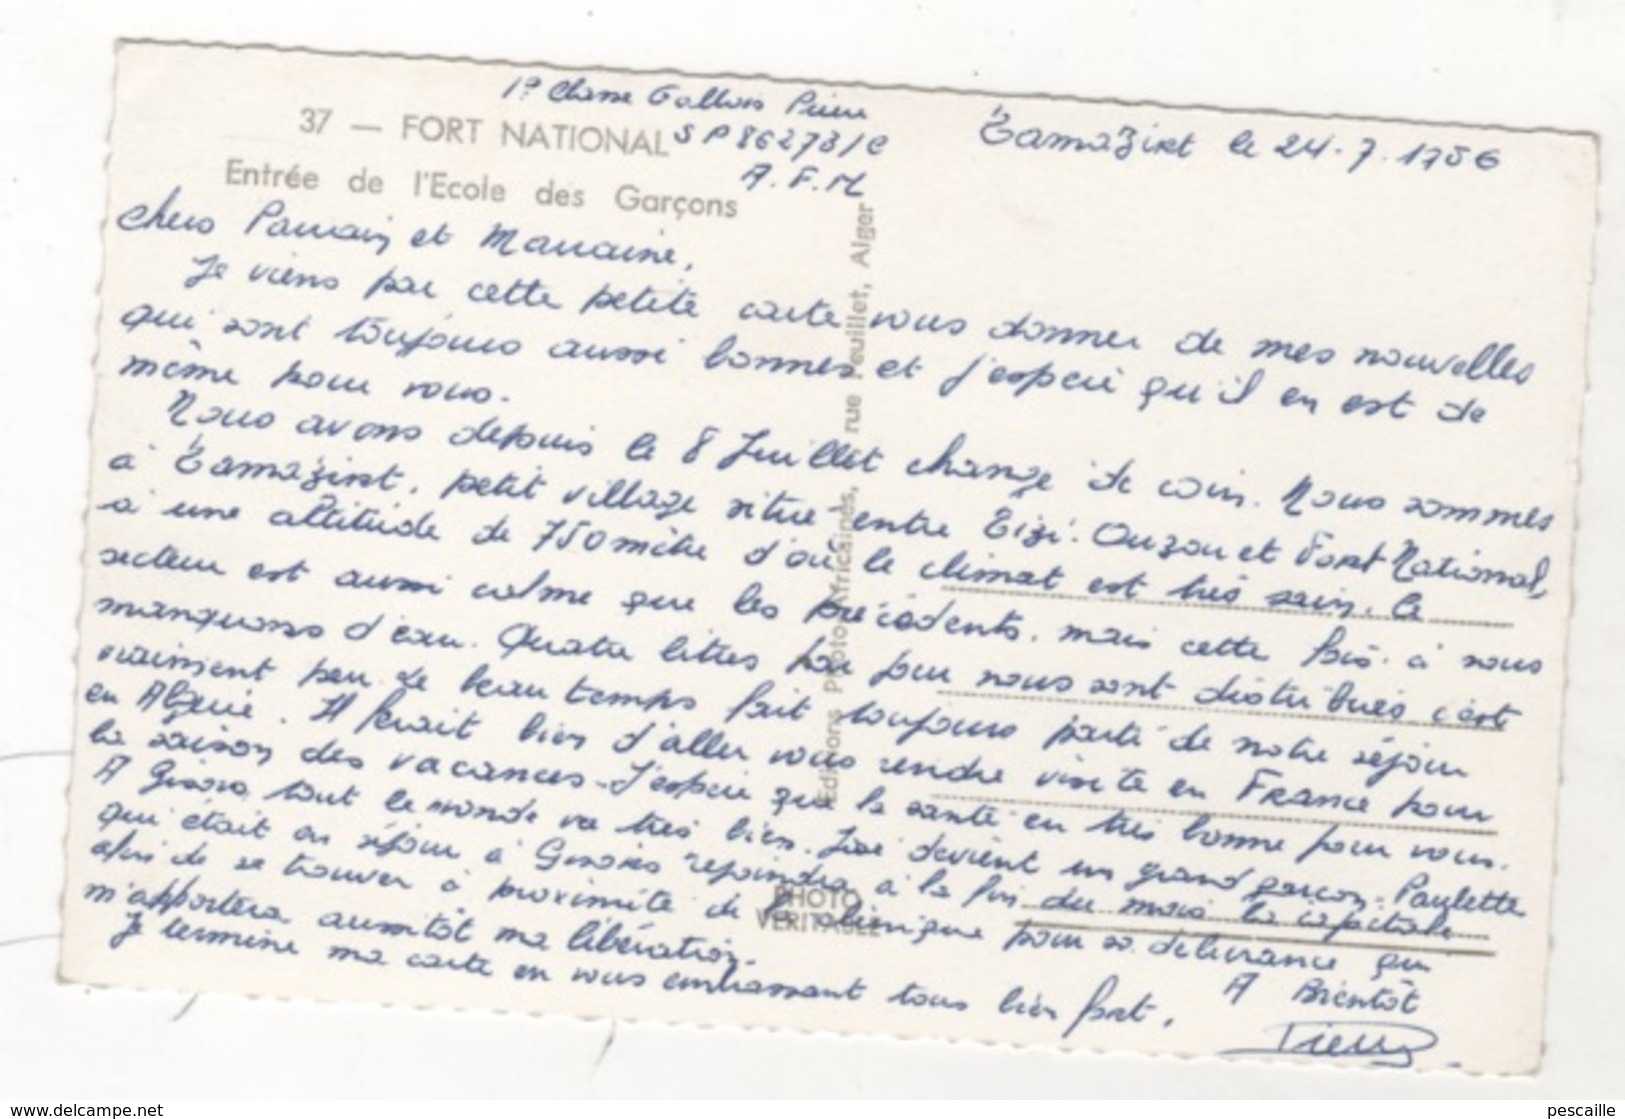 1º Classe Gallois Pierre
37 — FORT NATIONAL
SP 86273/C
Entrée de l'Ecole des Garçons
A.F.N
Tamazirt le 24.7.1956
Chers Parrain et Marraine,
Je viens par cette petite carte vous donner de mes nouvelles
qui sont toujours aussi bonnes et j'espère qu'il en est de
même pour vous.
Nous avons depuis le 8 Juillet change de coin. Nous sommes
à Tamazirt, petit village situe entre Tizi-Ouzou et Fort National,
à une altitude de 750 mètre d'où le climat est très sain. Le
secteur est aussi calme que les précédents. mais cette fois-ci nous
manquons d'eau. Quatre litres par jour nous sont distribués c'est
vraiment peu. Le beau temps fait toujours parti de notre séjour
en Algerie. Il ferait bien d'aller vous rendre visite en France pour
la saison des vacances. J'espère que la santé en très bonne pour vous.
A Gisors tout le monde va très bien. devient un grand garçon. Paulette
qui était en séjour à Gisors rejoindra à la fin du mois la capitale
afin de se trouver à proximité de la clinique pour sa delivrance qui
m'apportera aussitôt ma libération.
Je termine ma carte en vous embrassant tous bien fort.
A Bientôt
Pierre
Editions Photo-Africaines, rue Feuillet, Alger
PHOTO
VERITABLE
www.delcampe.net
pescaille